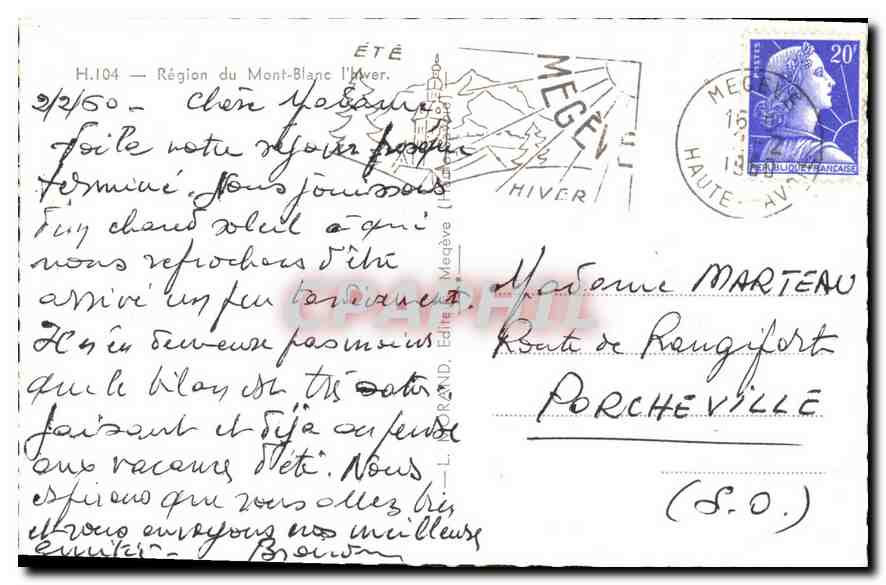 H.104 — Région du Mont-Blanc l'hiver.
ÉTÉ
MEGÈVE
HIVER
MEGÈVE
HAUTE-SAVOIE
POSTES
20F
REPUBLIQUE FRANÇAISE
2/2/60 - Chère Madame
Voilà notre séjour presque
terminé. Nous jouissons
d'un chaud soleil à qui
nous reprochons d'être
arrivé un peu tardivement.
Il n'en demeure pas moins
que le bilan est très satis-
faisant et déjà on pense
aux vacances d'été. Nous
espérons que vous allez bien
et vous envoyons nos meilleures
amitiés -
L. MORAND, Edite Megève
CPAPHIL
Madame MARTEAU
Route de Rangiport
PORCHEVILLE
(S.O.)